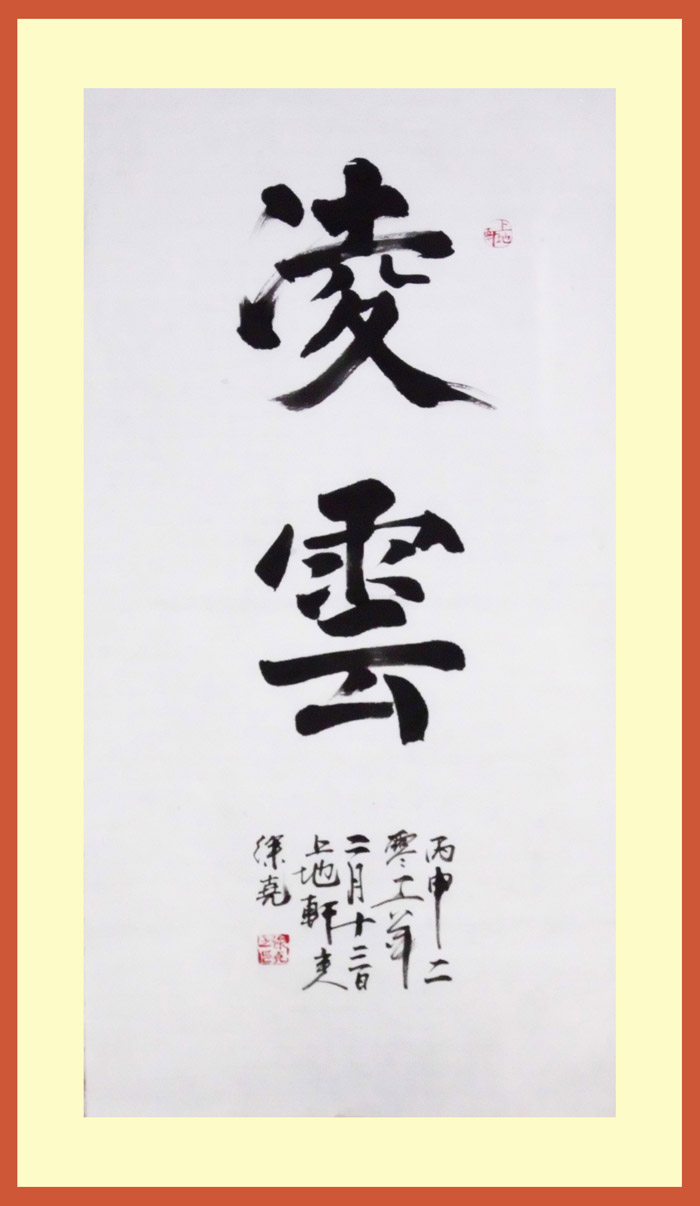 凌雲
丙申二
零一六年
二月十三日
上地軒主人
徐堯
上地軒